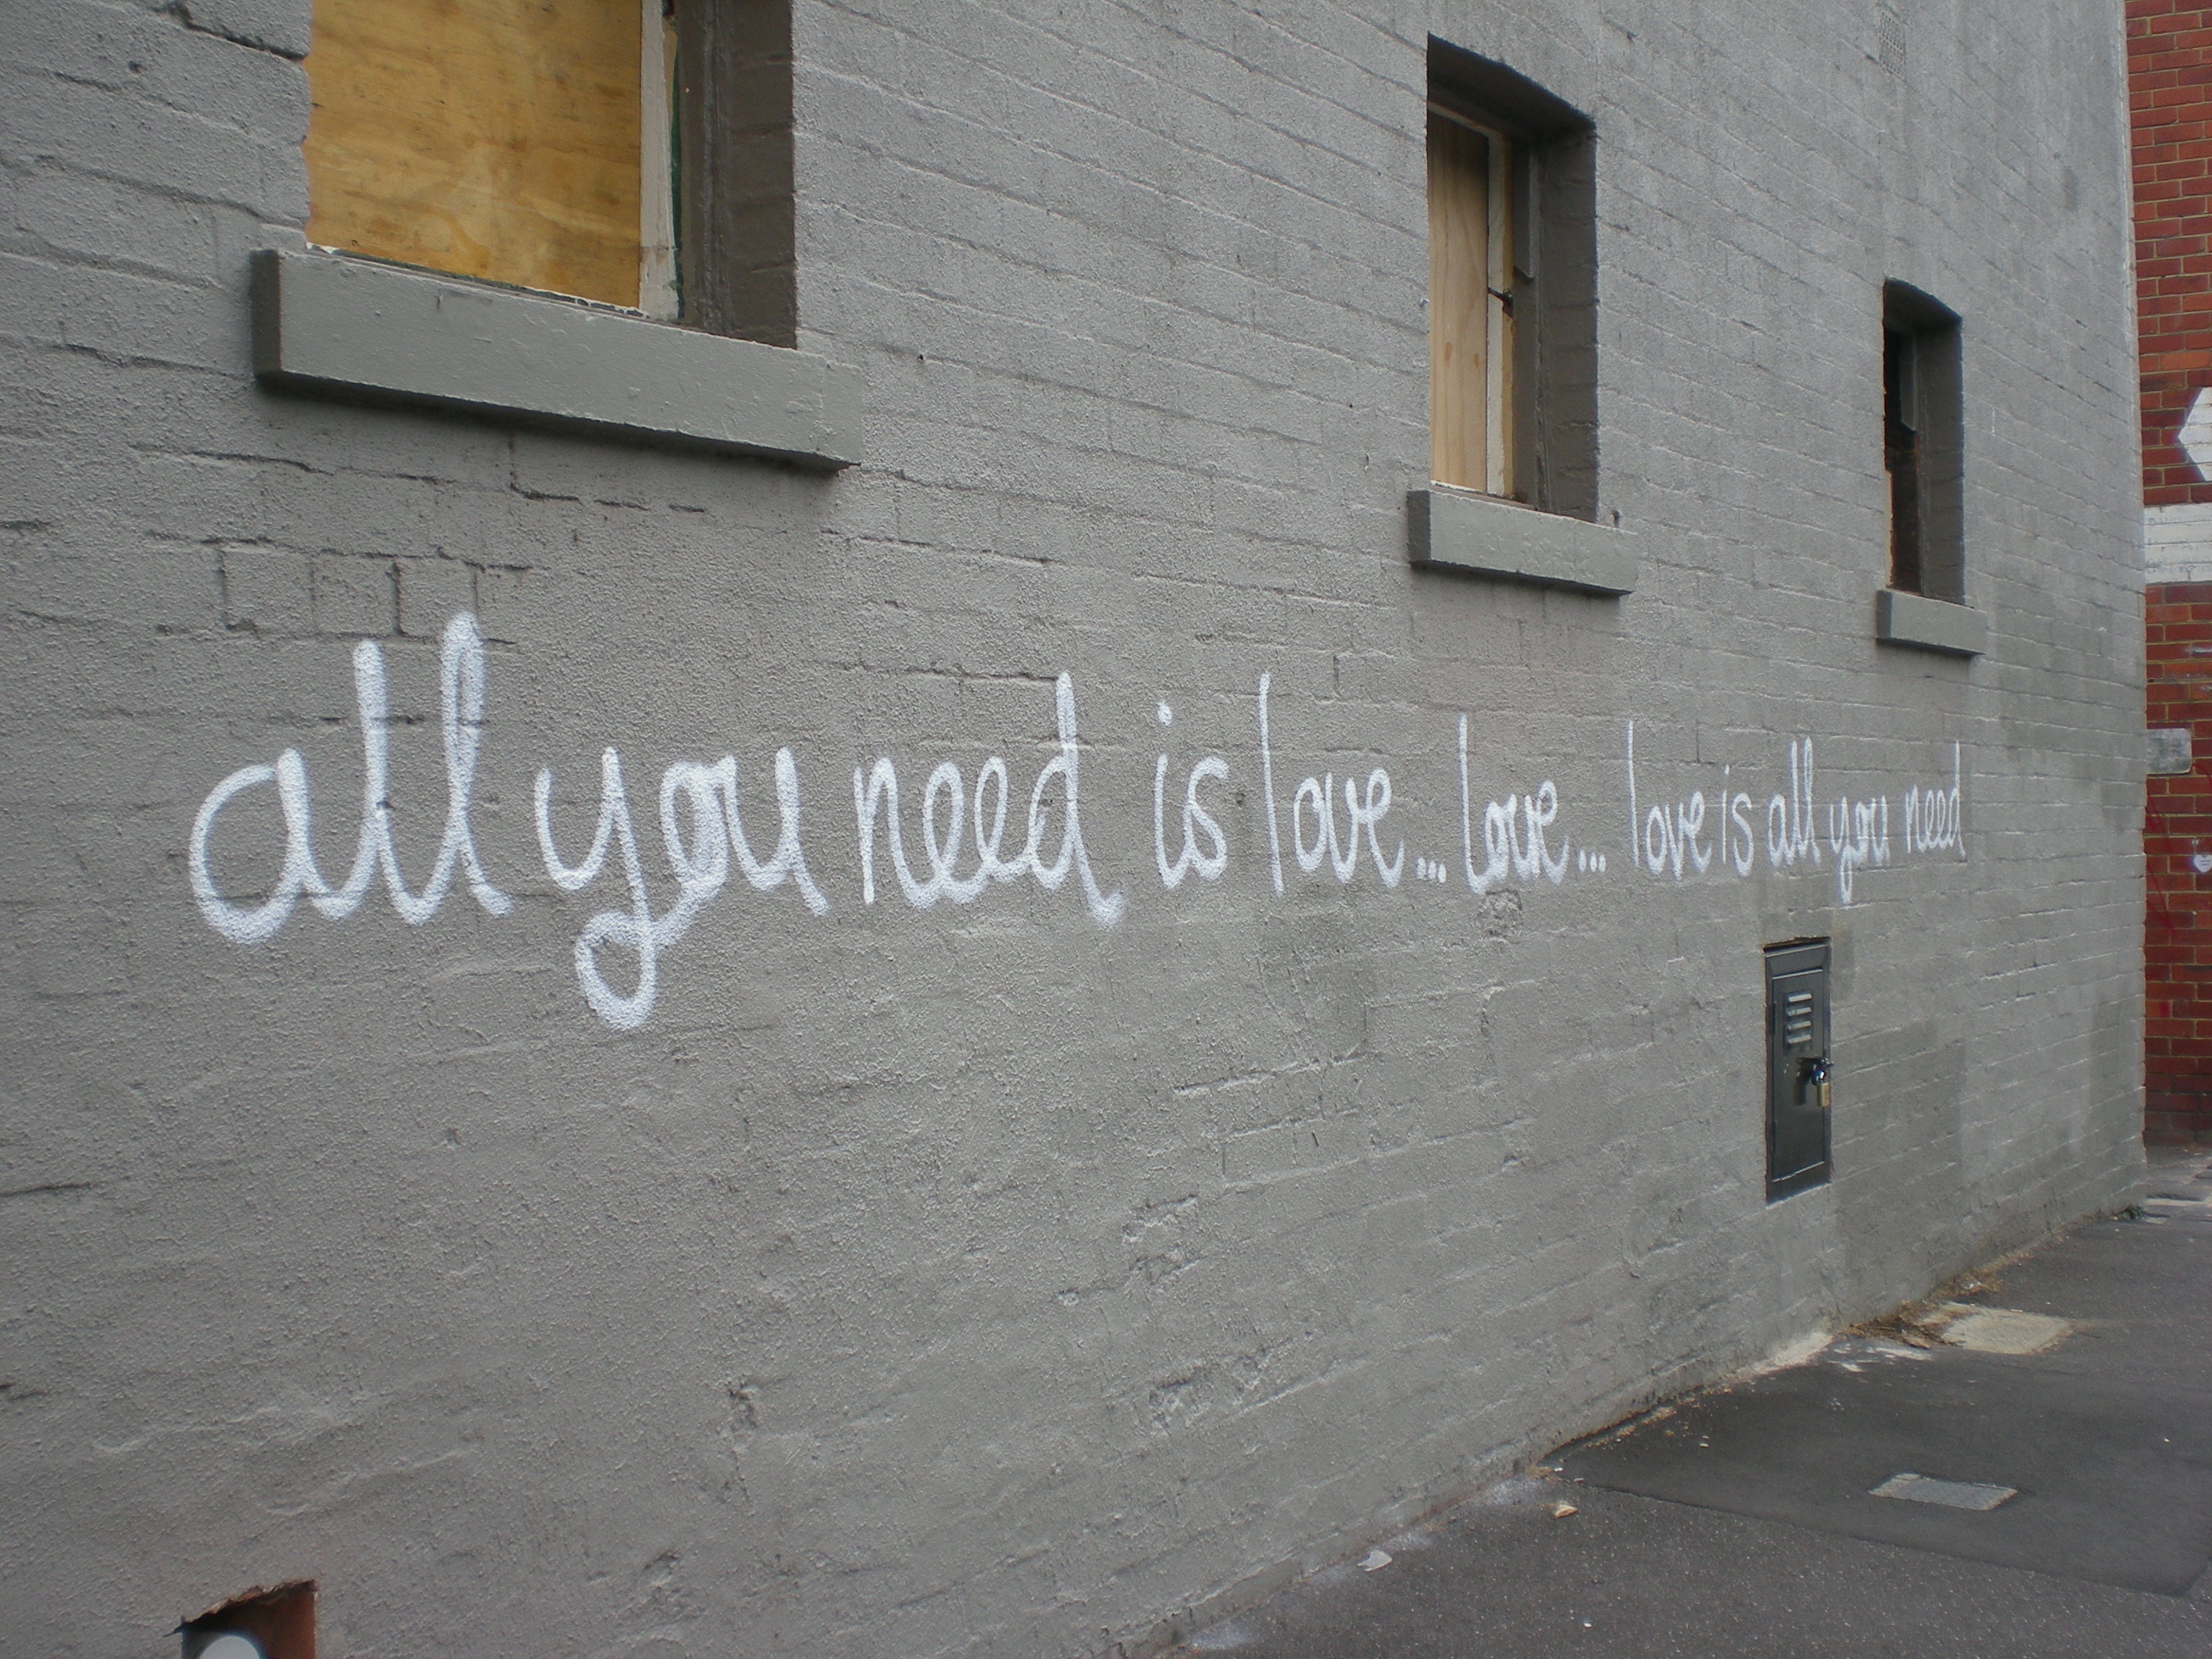 all you need is love... love... love is all you need